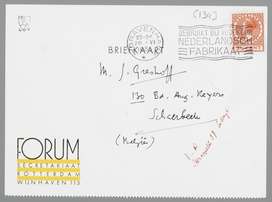 (134)
'S GRAVENHAGE
GEBRUIKT BIJ VOORKEUR
NEDERLANDSCH
FABRIKAAT
BRIEFKAART
M. J. Greshoff
130 Bd. Aug. Reyers
Schaerbeek
(België)
FORUM
SECRETARIAAT
ROTTERDAM
WIJNHAVEN 113